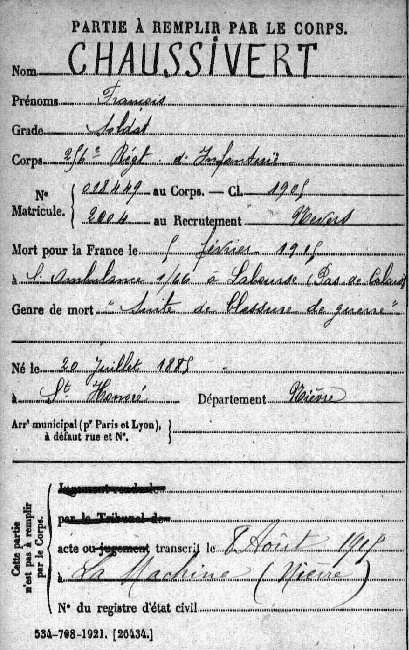 PARTIE À REMPLIR PAR LE CORPS.
Nom CHAUSSIVERT
Prénoms Francis
Grade Soldat
Corps 256e Régt d'Infanterie
No Matricule. { 018449 au Corps. — Cl. 1905
2004 au Recrutement Nevers
Mort pour la France le 5 février 1915
à l'Ambulance 1/66 à Labourse (Pas de Calais)
Genre de mort "Suite de Blessure de guerre"
Né le 20 Juillet 1885
à St Honoré Département Nièvre
Arrt municipal (pr Paris et Lyon), à défaut rue et No. }
Cette partie n'est pas à remplir par le Corps.
Jugement rendu le
par le Tribunal de
acte ou jugement transcrit le 8 Août 1915
à La Machine (Nièvre)
No du registre d'état civil
534-708-1921. [26434.]